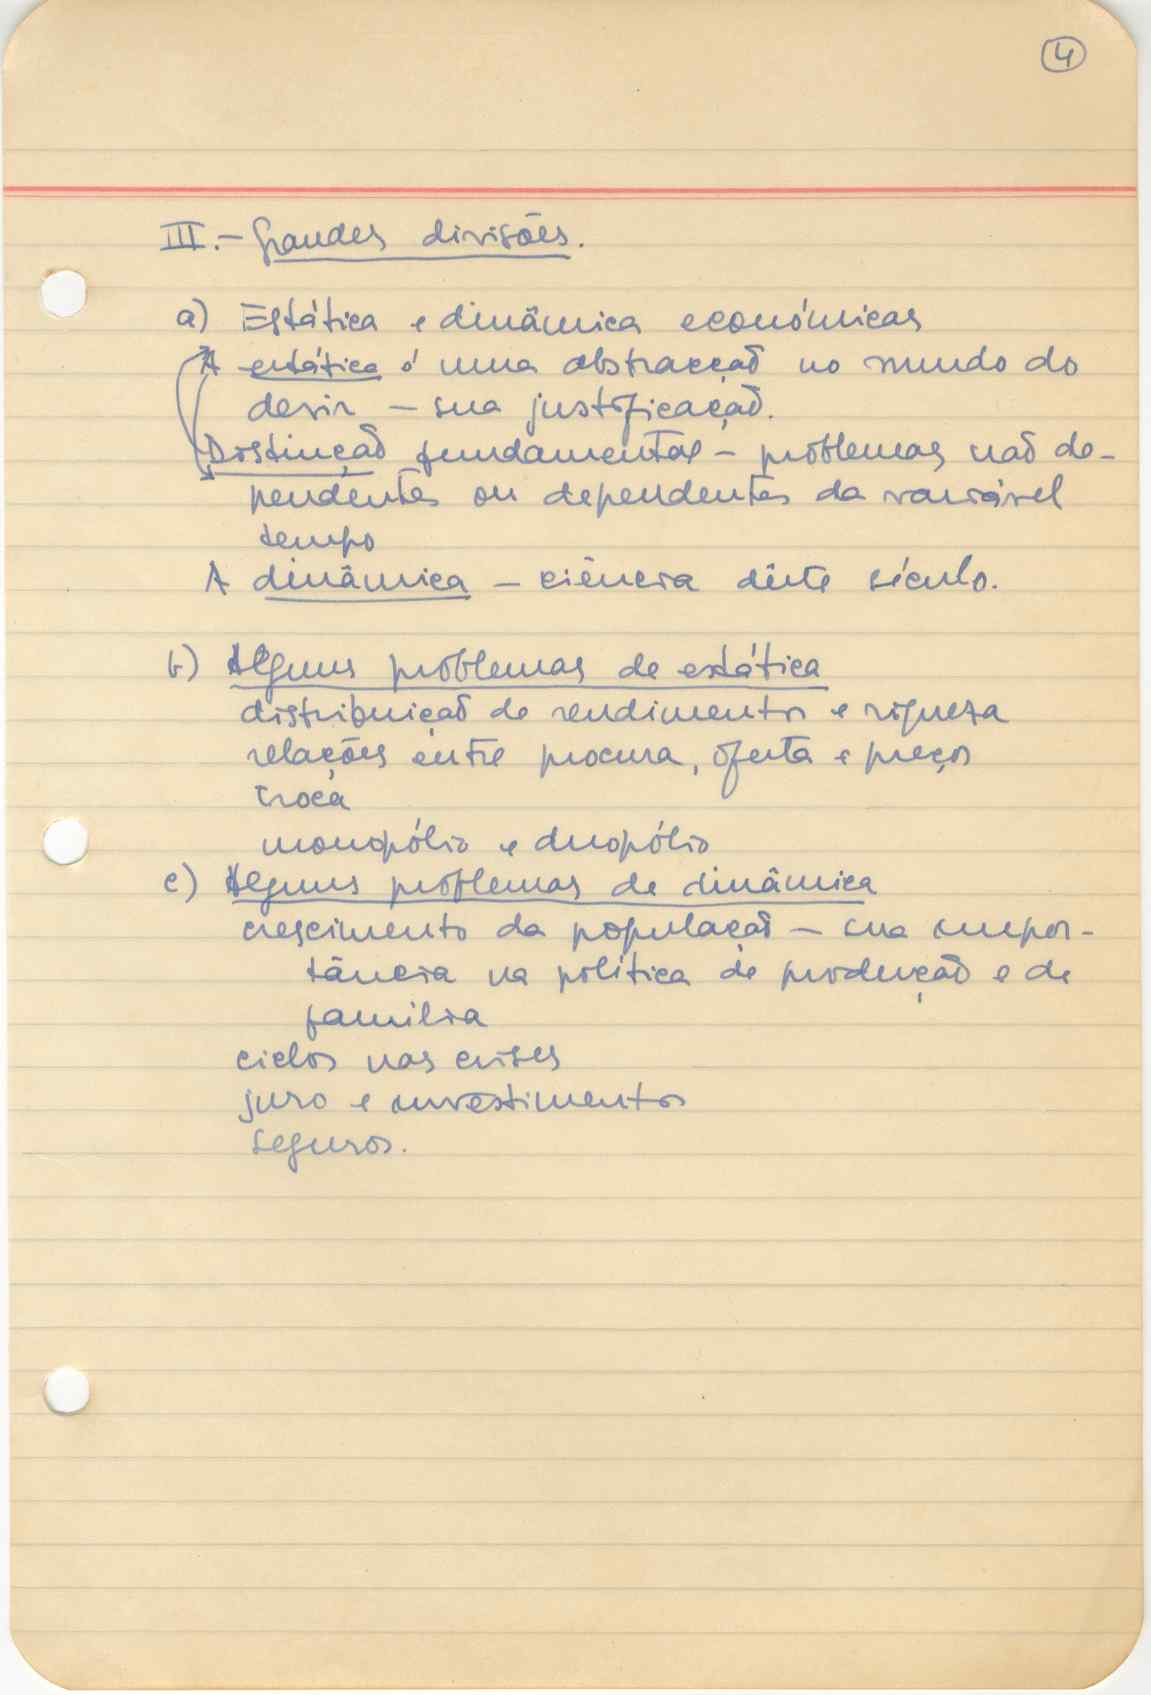 4
III.- Grandes divisões.
a) Estática e dinâmica económicas
A estática é uma abstracção no mundo do
devir – sua justificação.
Distinção fundamental – problemas não de-
pendentes ou dependentes da variável
tempo
A dinâmica – ciência dêste século.
b) Alguns problemas de estática
distribuição de rendimentos e riqueza
relações entre procura, oferta e preços
troca
monopólio e duopólio
c) Alguns problemas de dinâmica
crescimento da população – sua impor-
tância na política de produção e de
família
ciclos nas crises
juro e investimentos
seguros.